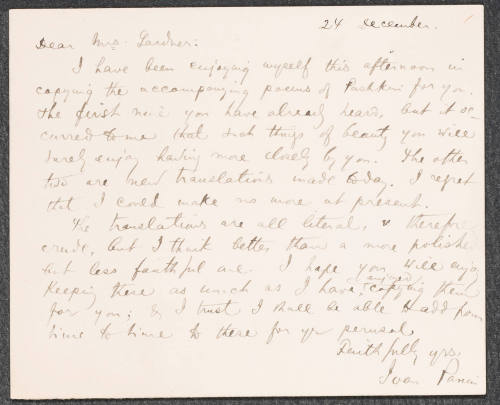 24 December.
Dear Mrs. Gardner:
I have been enjoying myself this afternoon in
copying the accompanying poems of Pushkin for you.
The first nine you have already heard, but it oc-
curred to me that such things of beauty you will
surely enjoy having more closely by you. The other
two are new translations made today. I regret
that I could make no more at present.
The translations are all literal, & therefore
crude, but I think better than a more polished
but less faithful one. I hope you will enjoy
keeping these as much as I have enjoyed copying them
for you; & I trust I shall be able to add from
time to time to these for yr perusal.
Faithfully yrs
Ivan Panin